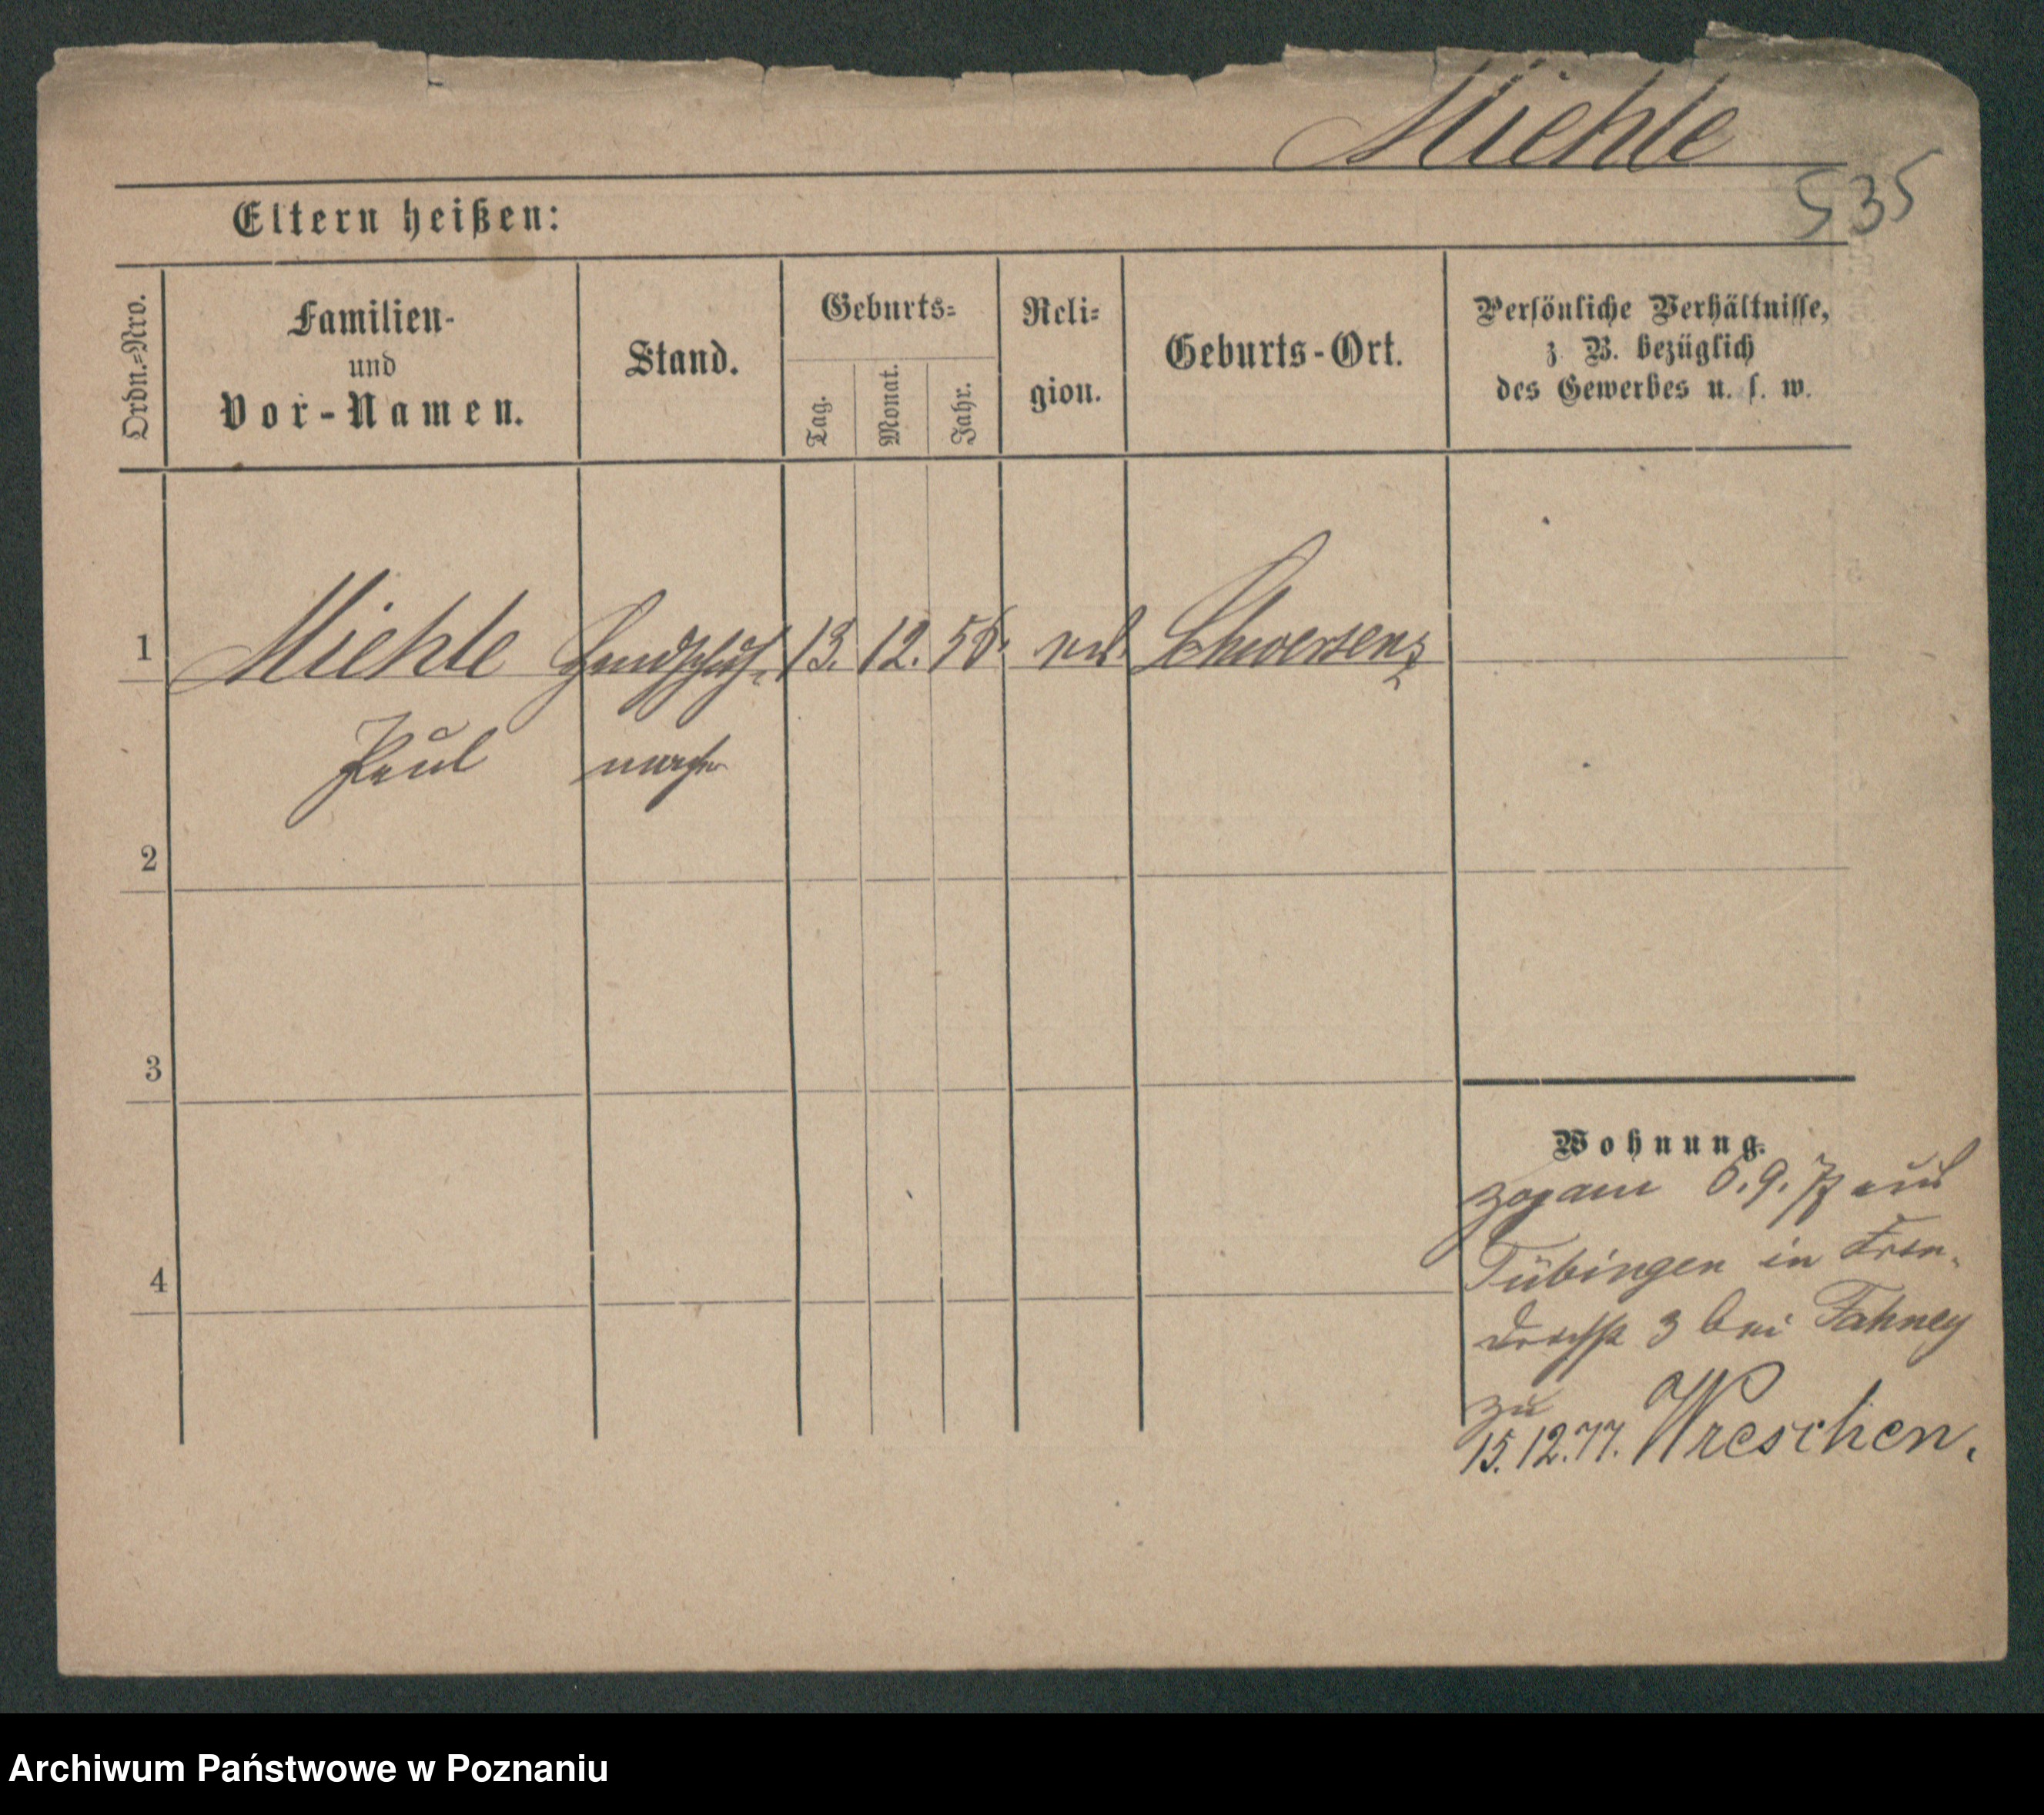 Miehle
535
Eltern heißen:
Ordn.=Nro.
Familien-
und
Vor-Namen.
Stand.
Geburts=
Tag.
Monat.
Jahr.
Reli=
gion.
Geburts-Ort.
Persönliche Verhältnisse,
z. B. bezüglich
des Gewerbes u. s. w.
1 Miehle Handschuh- 13. 12. Schwersenz
Paul macher
2
3
4
Wohnung.
zog am 6. 9. 77 aus
Tübingen in
3 bei Fahney
zu
15.12.77. Wreschen.
Archiwum Państwowe w Poznaniu